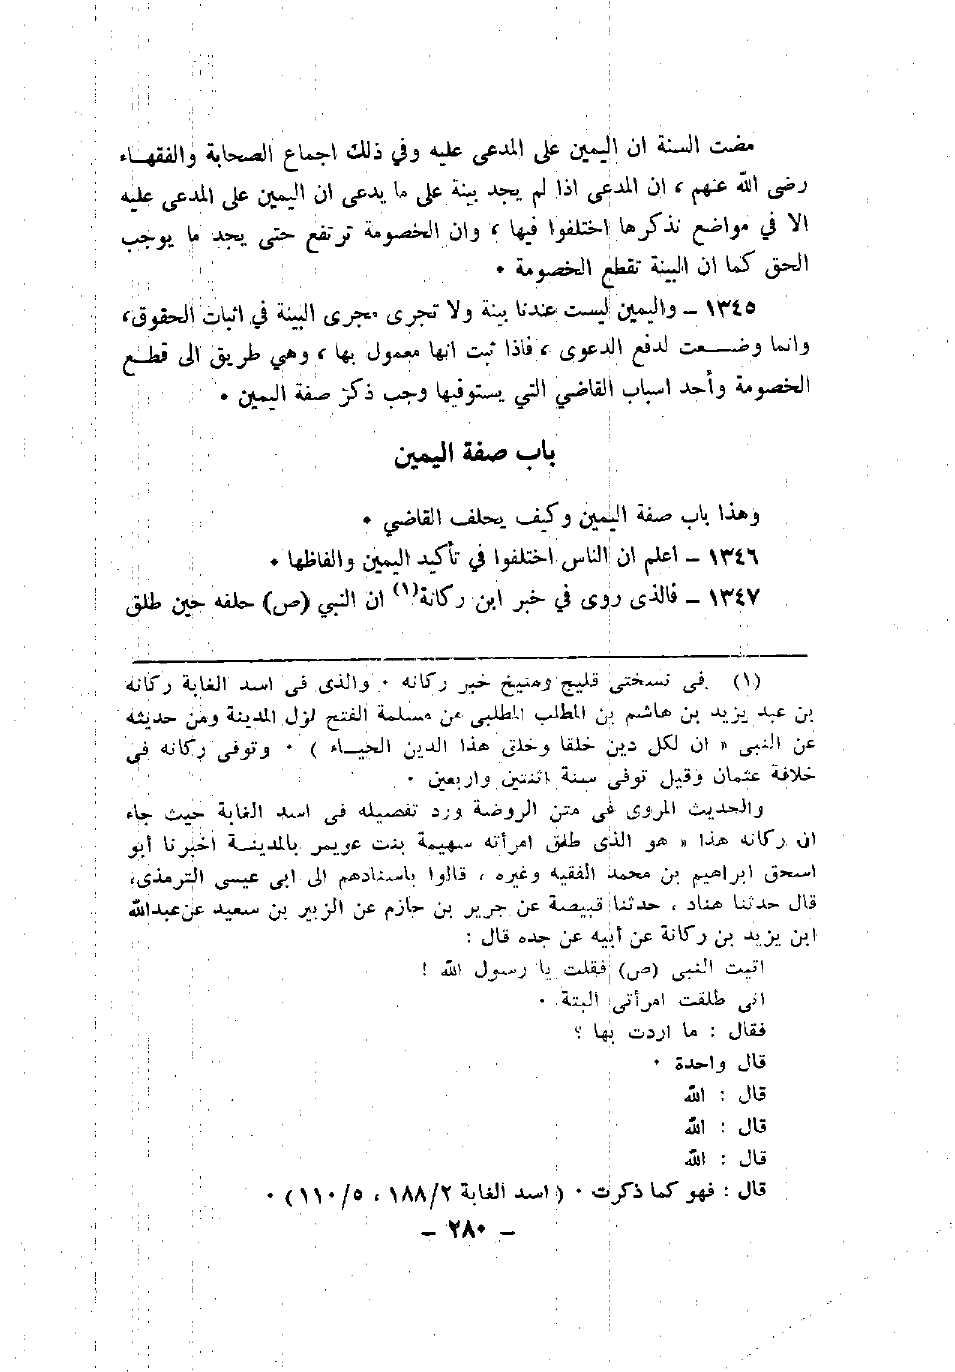 مضت السنة ان اليمين على المدعى عليه وفي ذلك اجماع الصحابة والفقهـاء
رضى الله عنهم ، ان المدعى اذا لم يجد بينة على ما يدعى ان اليمين على المدعى عليه
الا في مواضع نذكرها اختلفوا فيها ، وان الخصومة ترتفع حتى يجد ما يوجب
الحق كما ان البينة تقطع الخصومة ٠
١٣٤٥ ـ واليمين ليست عندنا بينة ولا تجرى مجرى البينة في اثبات الحقوق،
وانما وضـــعت لدفع الدعوى ، فاذا ثبت انها معمول بها ، وهي طريق الى قطـع
الخصومة وأحد اسباب القاضي التي يستوفيها وجب ذكر صفة اليمين ٠
باب صفة اليمين
وهذا باب صفة اليمين وكيف يحلف القاضي ٠
١٣٤٦ ـ اعلم ان الناس اختلفوا في تأكيد اليمين والفاظها ٠
١٣٤٧ ـ فالذى روى في خبر ابن ركانة(١) ان النبي (ص) حلفه حين طلق
(١) في نسختى قليج ومنيخ خبر ركانه ٠ والذى فى اسد الغابة ركانه
بن عبد يزيد بن هاشم بن المطلب المطلبي من مسلمة الفتح نزل المدينة ومن حديثه
عن النبى « ان لكل دين خلقا وخلق هذا الدين الحيـاء ) ٠ وتوفى ركانه فى
خلافة عثمان وقيل توفى سنة اثنتين واربعين ٠
والحديث المروى فى متن الروضة ورد تفصيله فى اسد الغابة حيث جاء
ان ركانه هذا « هو الذى طلق امرأته سهيمة بنت عويمر بالمدينـة اخبرنا أبو
اسحق ابراهيم بن محمد الفقيه وغيره ، قالوا باسنادهم الى ابى عيسى الترمذى،
قال حدثنا هناد ، حدثنا قبيصة عن جرير بن حازم عن الزبير بن سعيد عن عبدالله
ابن يزيد بن ركانة عن أبيه عن جده قال :
اتيت النبى (ص) فقلت يا رسول الله !
انى طلقت امرأتى البتة ٠
فقال : ما اردت بها ؟
قال واحدة ٠
قال : الله
قال : الله
قال : الله
قال : فهو كما ذكرت ٠ ( اسد الغابة ١٨٨/٢ ، ١١٠/٥) ٠
ـ ٢٨٠ ـ